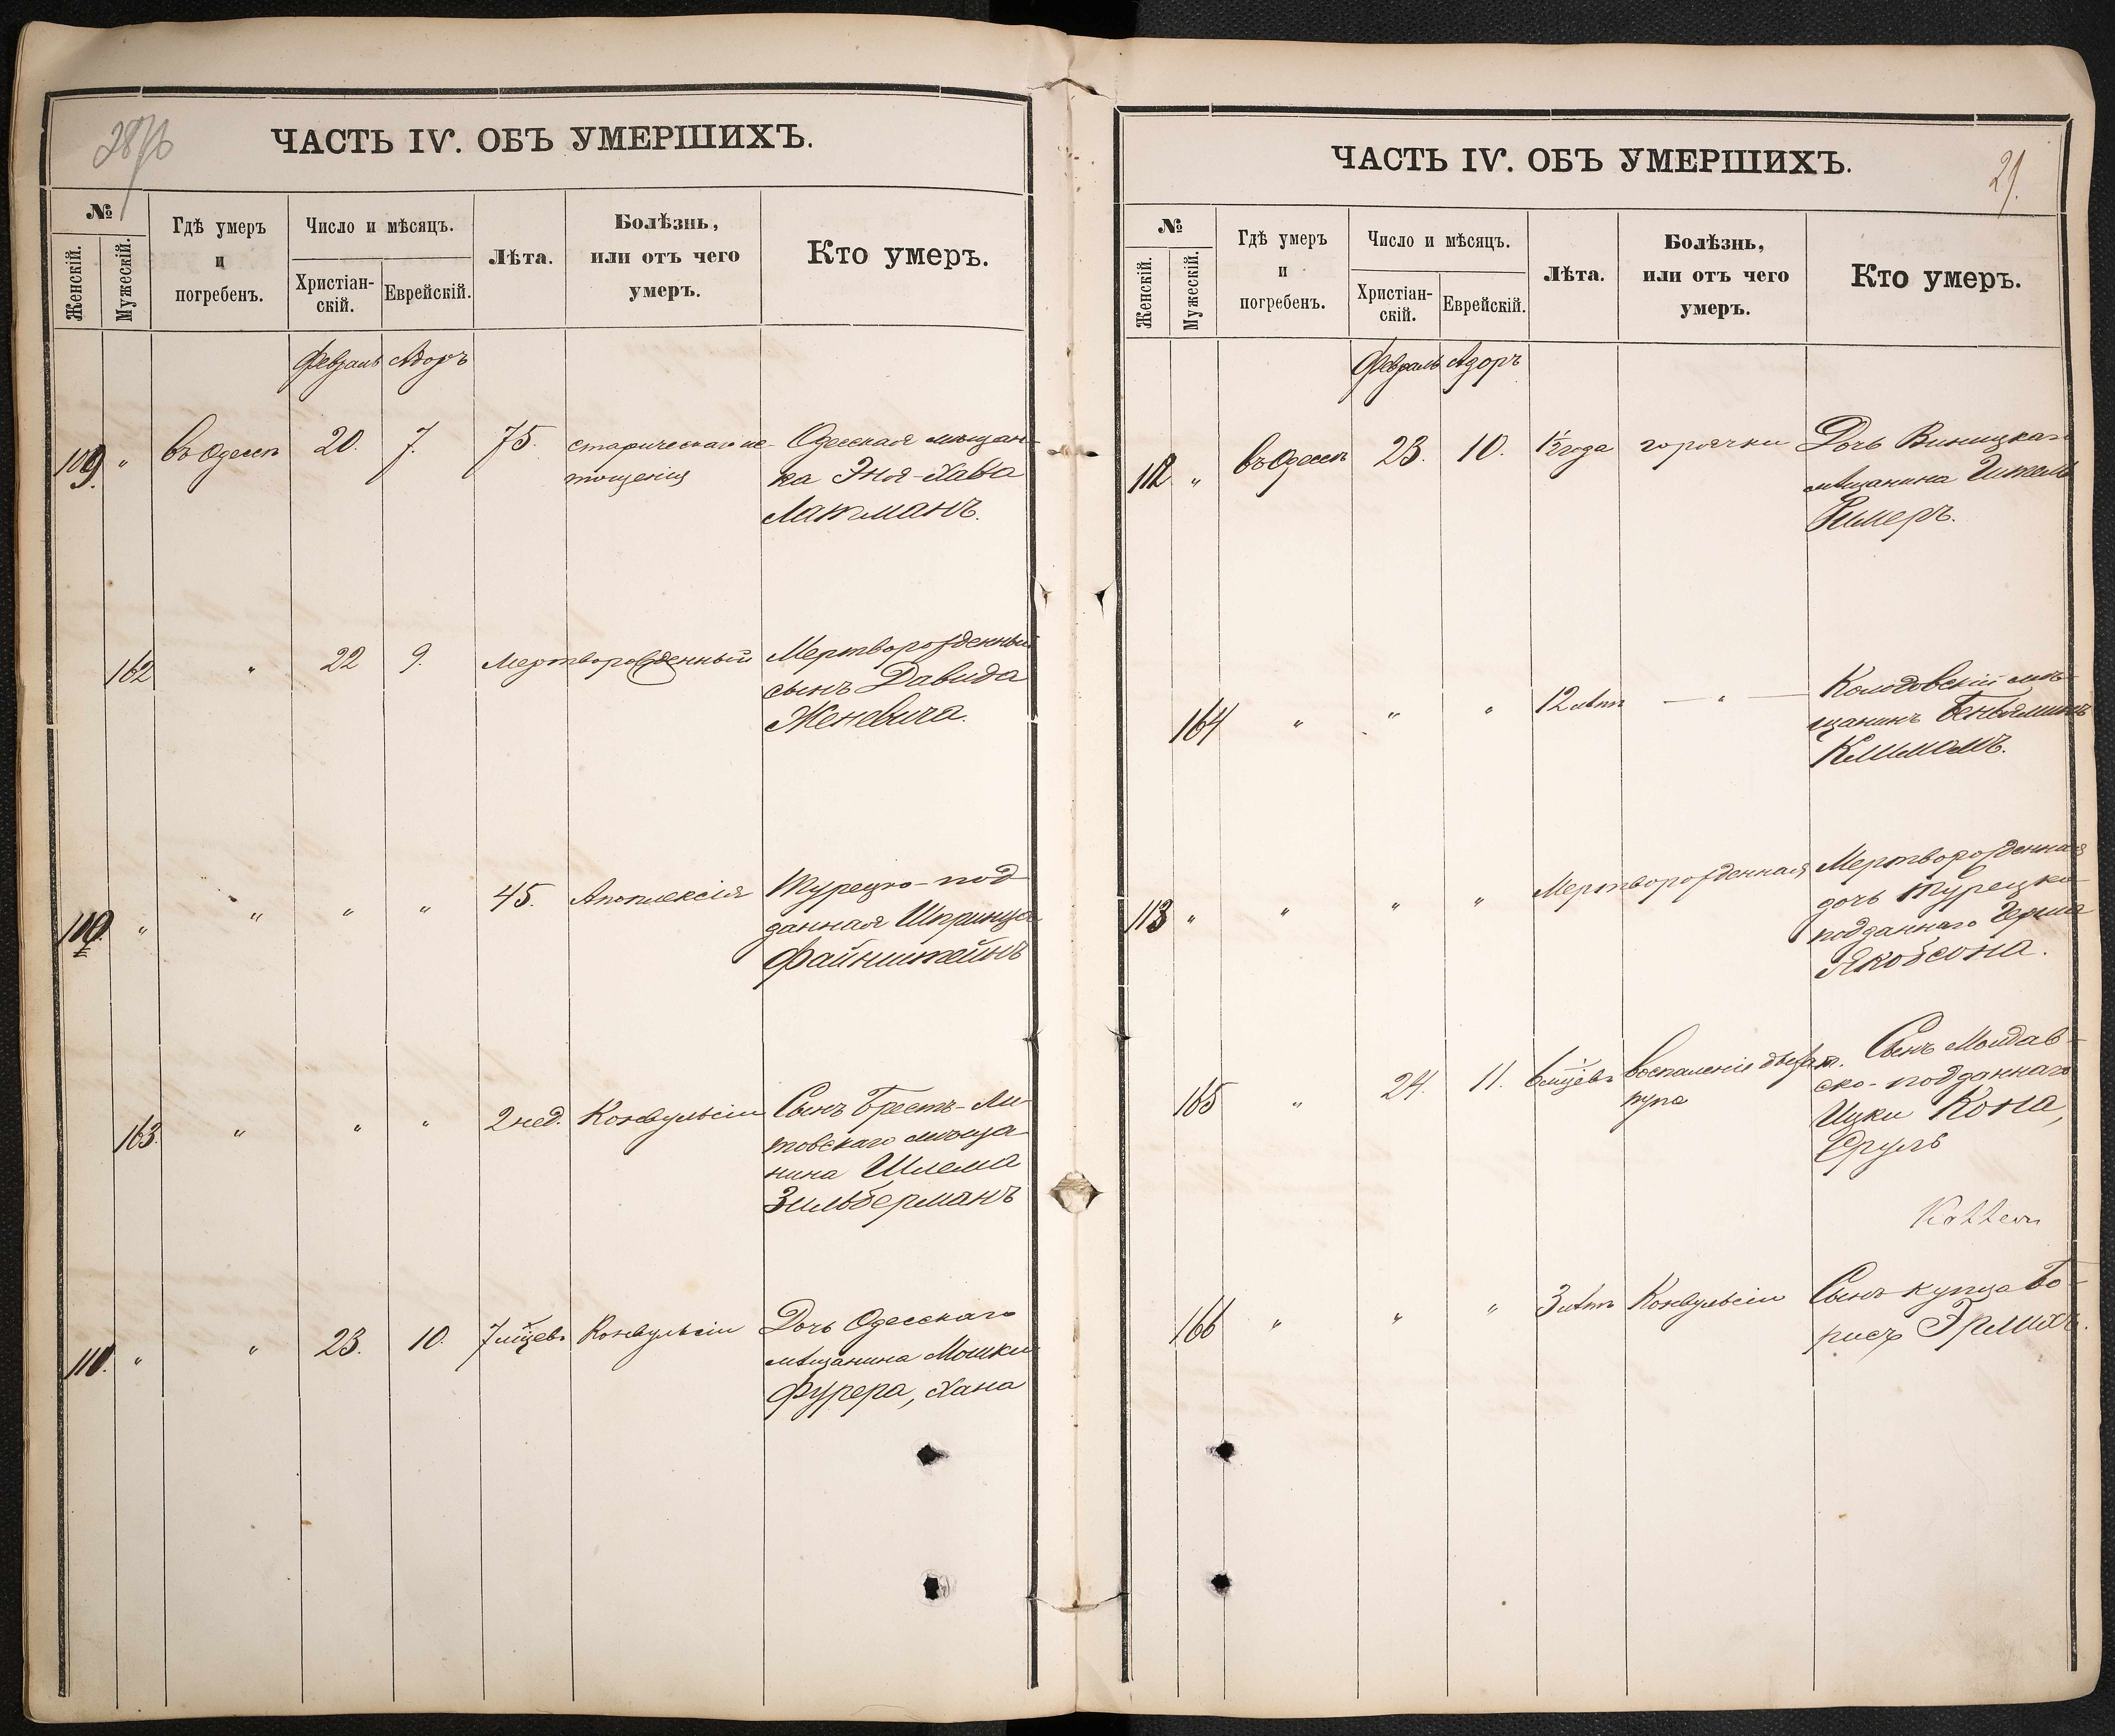 ЧАСТЬ IV. ОБЪ УМЕРШИХЪ.
№
Женскій.
Мужескій.
Гдѣ умеръ
и
погребенъ.
Число и мѣсяцъ.
Христіан-
скій.
Еврейскій.
Лѣта.
Болѣзнь,
или отъ чего
умеръ.
Кто умеръ.
Февраль Адоръ
109. " въ Одессѣ 20. 7. 75. старческаго ис- Одесская мѣщан-
тощенія ка Эня-Хава
Латманъ.
162 " 22 9. Мертворожденный Мертворожденный
сынъ Давида
Женевича.
" " " " 45. Апоплексія Турецко-под
данная Шпринца
Файнштейнъ
163. " " " 2 нед. Конвульсіи Сынъ Брестъ-Ли-
товскаго мѣща
нина Шлема
Зильберманъ
" " 23. 10. 7 мцевъ Конвульсіи Дочь Одесскаго
мѣщанина Мошки
Фурера, Хана
ЧАСТЬ IV. ОБЪ УМЕРШИХЪ.
21.
№
Женскій.
Мужескій.
Гдѣ умеръ
и
погребенъ.
Число и мѣсяцъ.
Христіан-
скій.
Еврейскій.
Лѣта.
Болѣзнь,
или отъ чего
умеръ.
Кто умеръ.
Февраль Адоръ
112 " въ Одессѣ 23. 10. 1½ года горячки Дочь Виницкаго
мѣщанина Гитель
Ример.
164 " " " 12 лѣтъ — " — Колодовскій мѣ-
щанинъ Беньяминъ
Климатъ.
113 " " " " Мертворожденная Мертворожденная
дочь Турецко-
подданнаго Герша
Якобсона.
165 " 24. 11. 6 мцевъ Воспаленіе дыхат. Сынъ Молдав-
ско-подданнаго
Ицки Кона,
Сруль
166 " " " 3 лѣтъ Конвульсіи Сынъ купца Бо-
рисъ Эрлихъ.